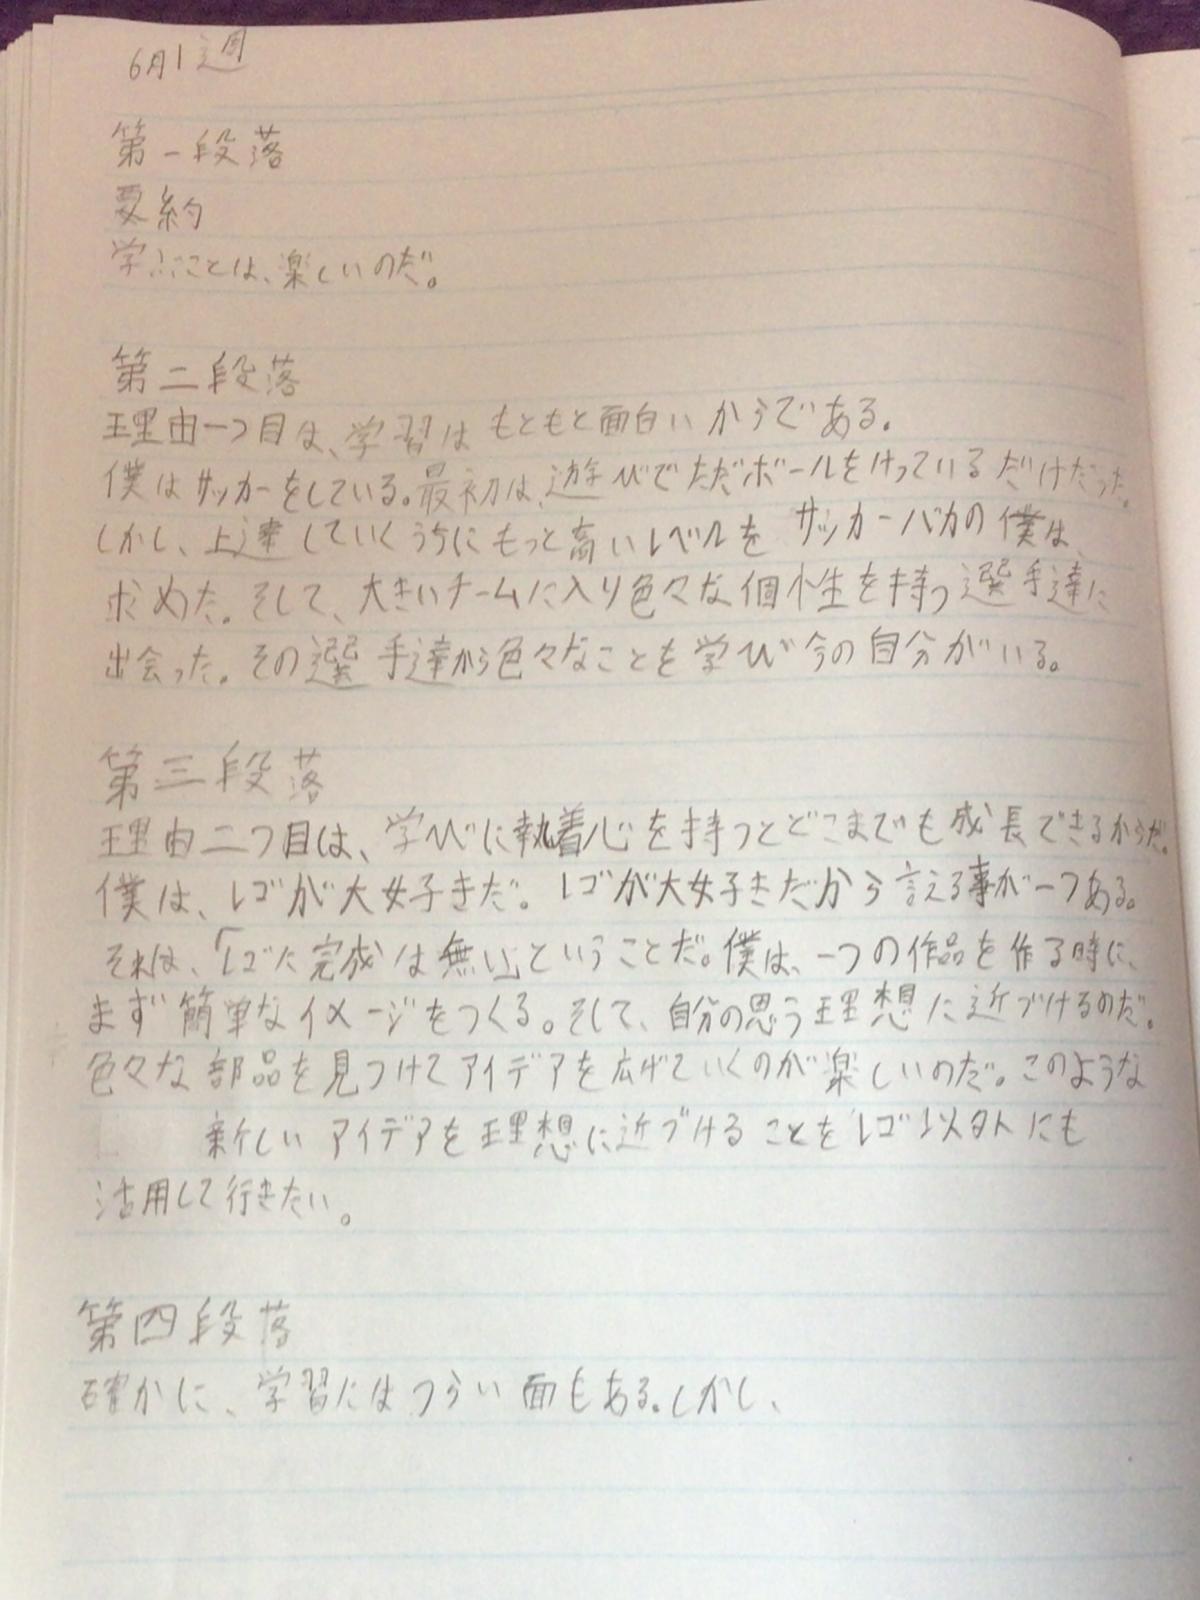 6月1週
第一段落
要約
学ぶことは、楽しいのだ。
第二段落
理由一つ目は、学習はもともと面白いからである。
僕はサッカーをしている。最初は、遊びでただボールをけっているだけだった。
しかし、上達していくうちにもっと高いレベルをサッカーバカの僕は、
求めた。そして、大きいチームに入り色々な個性を持つ選手達に
出会った。その選手達から色々なことを学び今の自分がいる。
第三段落
理由二つ目は、学びに執着心を持つとどこまでも成長できるからだ。
僕は、レゴが大好きだ。レゴが大好きだから言える事が一つある。
それは、「レゴに完成は無い」ということだ。僕は、一つの作品を作る時に、
まず簡単なイメージをつくる。そして、自分の思う理想に近づけるのだ。
色々な部品を見つけてアイデアを広げていくのが楽しいのだ。このような
新しいアイデアを理想に近づけることをレゴ以外にも
活用して行きたい。
第四段落
確かに、学習にはつらい面もある。しかし、